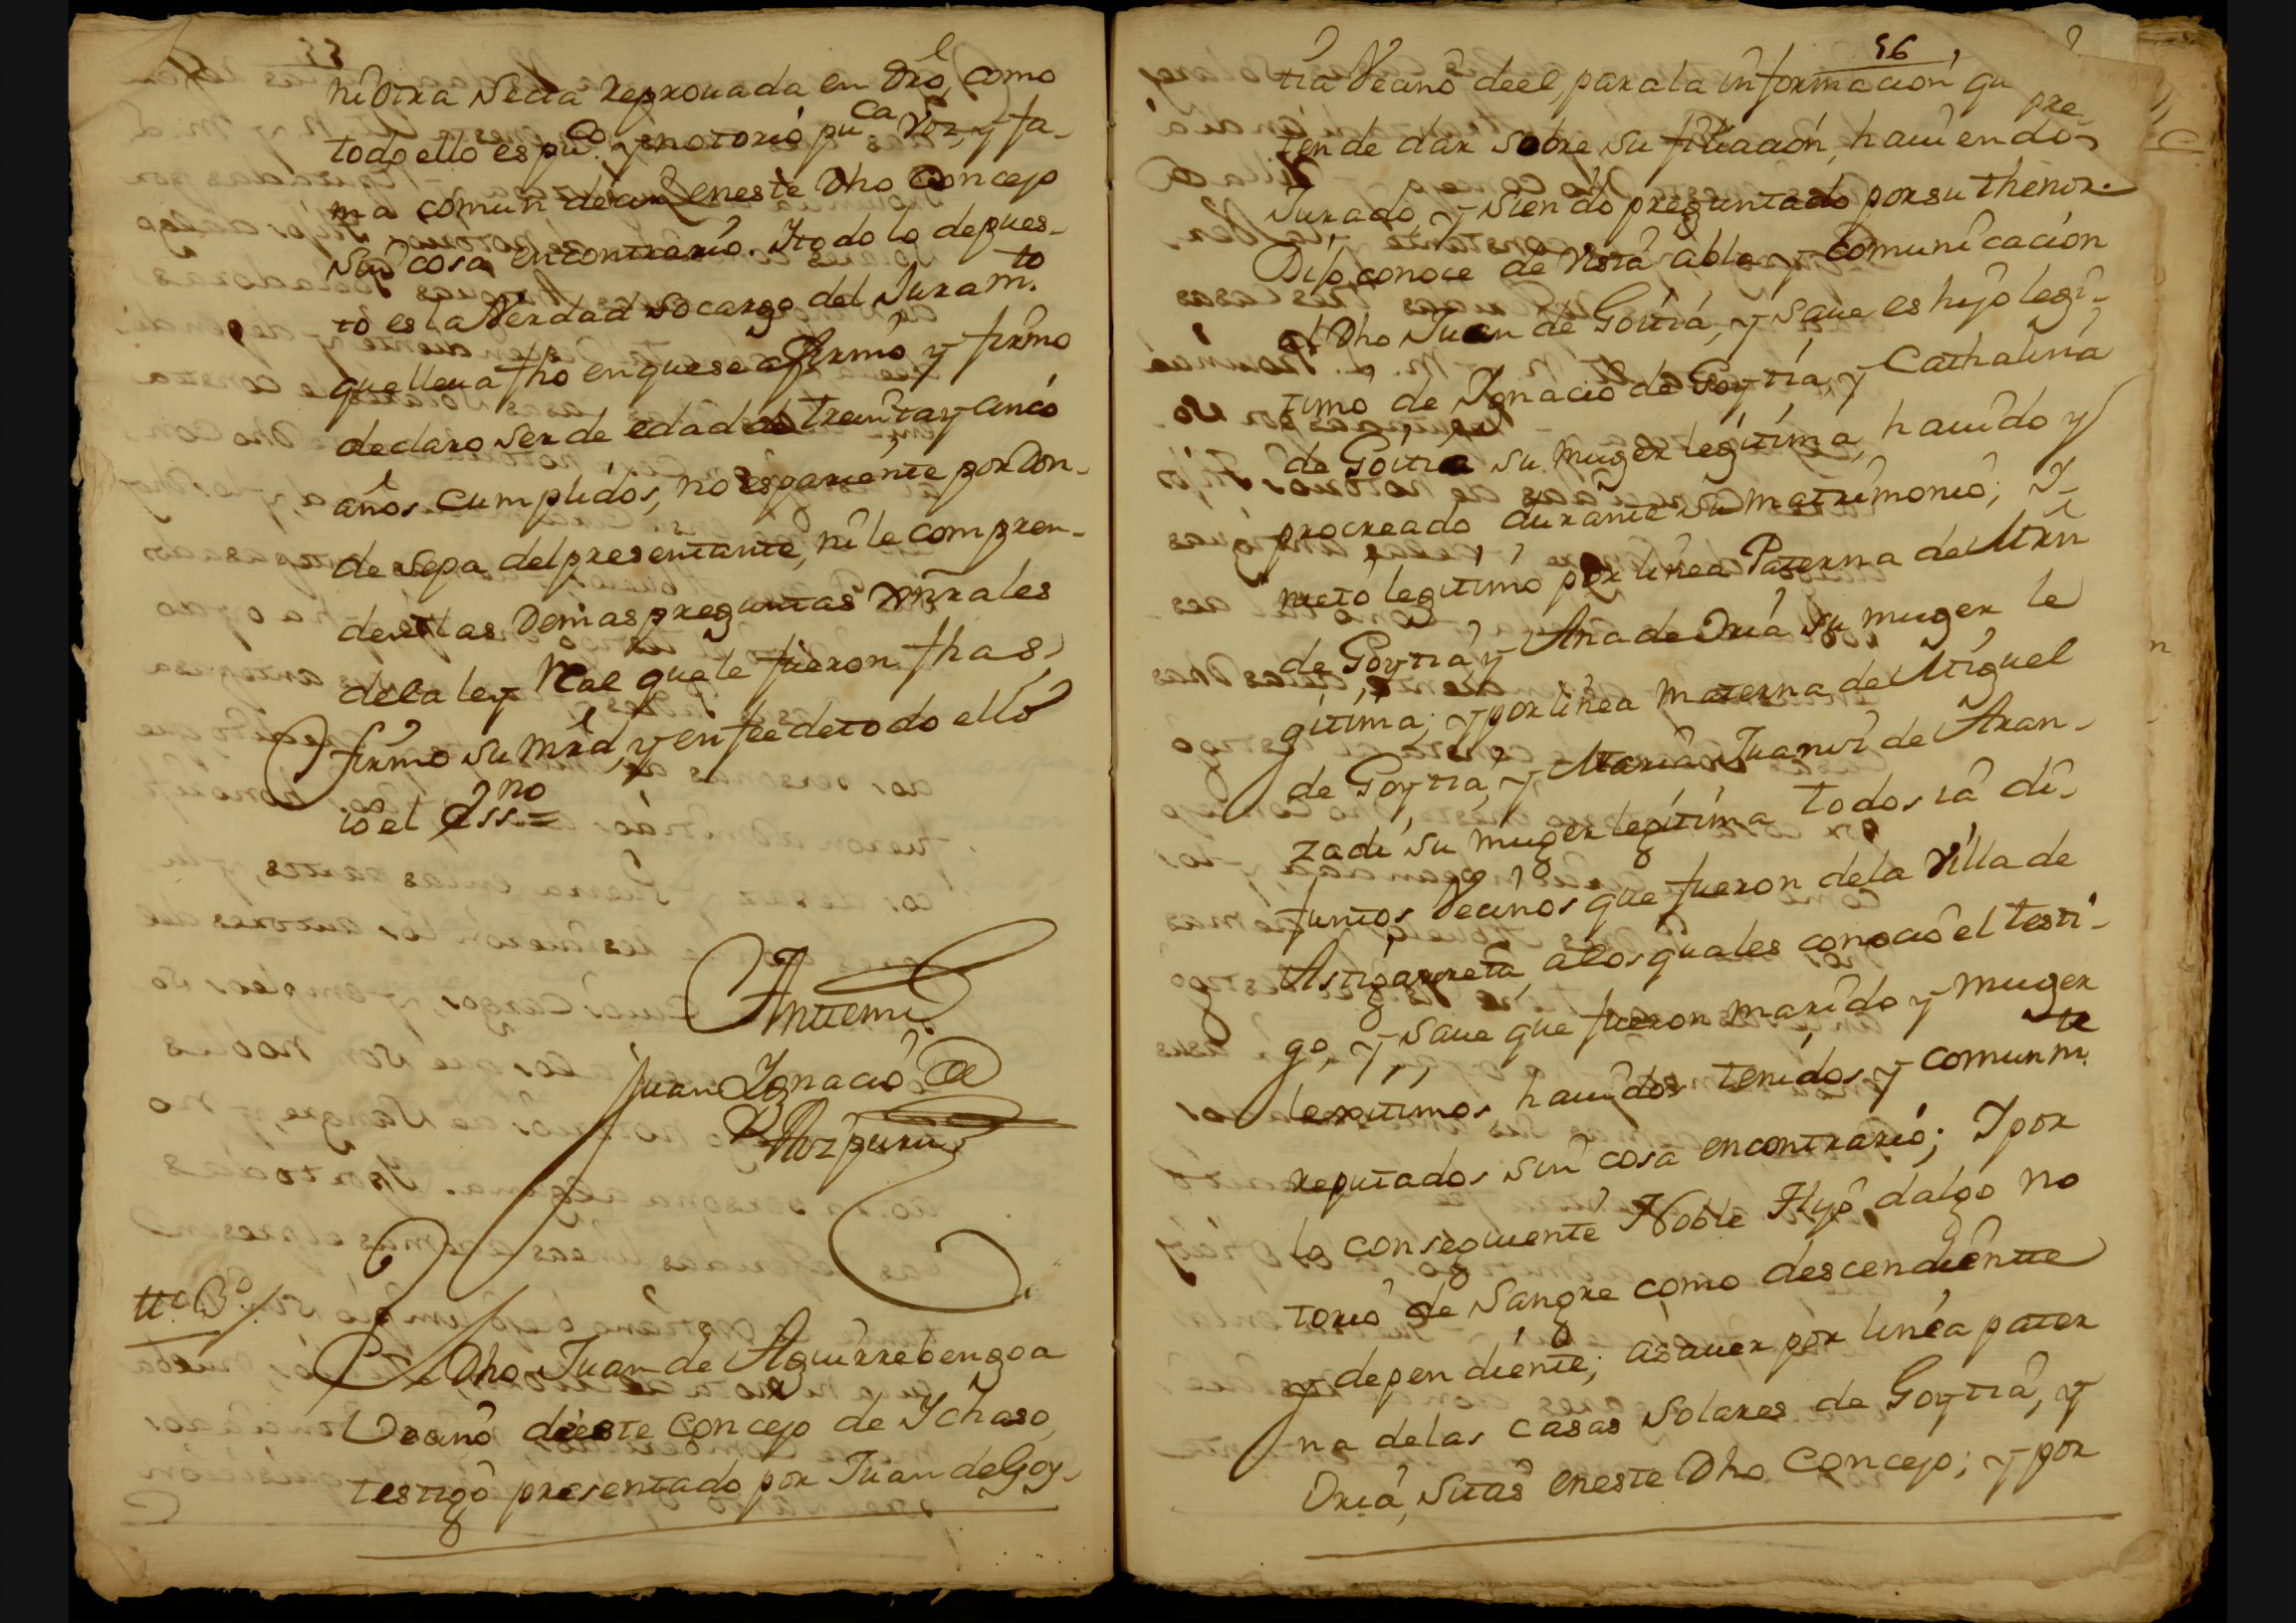 ni otra Secta Reprouada en dro, como
todo ello es pu.co y notorio pu.ca voz, y fa-
ma comun decir eneste Dho Concejo
sin cosa encontrario. Y todo lo depues-
to es la Verdad so cargo del Juram.to
que lleua fho en que se afirmó y firmo
declaro ser de edad de treinta y cinco
años cumplidos, no es pariente por don-
de sepa del presentante, ni le compren-
den las Demas preguntas Gnrales
dela ley Real que le fueron fhas,
firmo su Mrd, y en fee de todo ello
io el Ess.no =
Antemi
Juan Ignacio de
Azpuru
tt.o 3.o
El Dho Juan de Aguirrebengoa
Vecino de este Concejo de Ichaso,
testigo presentado por Juan de Goy-
56
tia Vecino de el, para la informacion qu pre-
tende dar sobre su filiacion, hauiendo
Jurado, y siendo preguntado por su thenor.
Dijo, conoce de vista abla y comunicacion
al Dho Juan de Goitia, y saue es hijo legi-
timo de Ignacio de Goytia, y Cathalina
de Goitia su muger legitima, hauido y
procreado durante su matrimonio; I-
nieto legitimo por linea Paterna de Mrn
de Goytia y Ana de Oria su muger le
gitima; y por linea materna de Miguel
de Goytia, y Maria Juaniz de Aran-
zadi su muger legitima todos ia di-
funtos, Vecinos que fueron dela Villa de
Astigarreta, alos quales conocio el testi-
go, y saue que fueron marido y muger
lexitimos hauidos tenidos y comunm.te
reputados sin cosa encontrario; I por
lo consequiente Noble Hijo dalgo no
torio de Sangre como descendiente
y dependiente; asauer por linea pater
na delas casas Solares de Goytia, y
Oria, sitas eneste Dho Concejo; y por